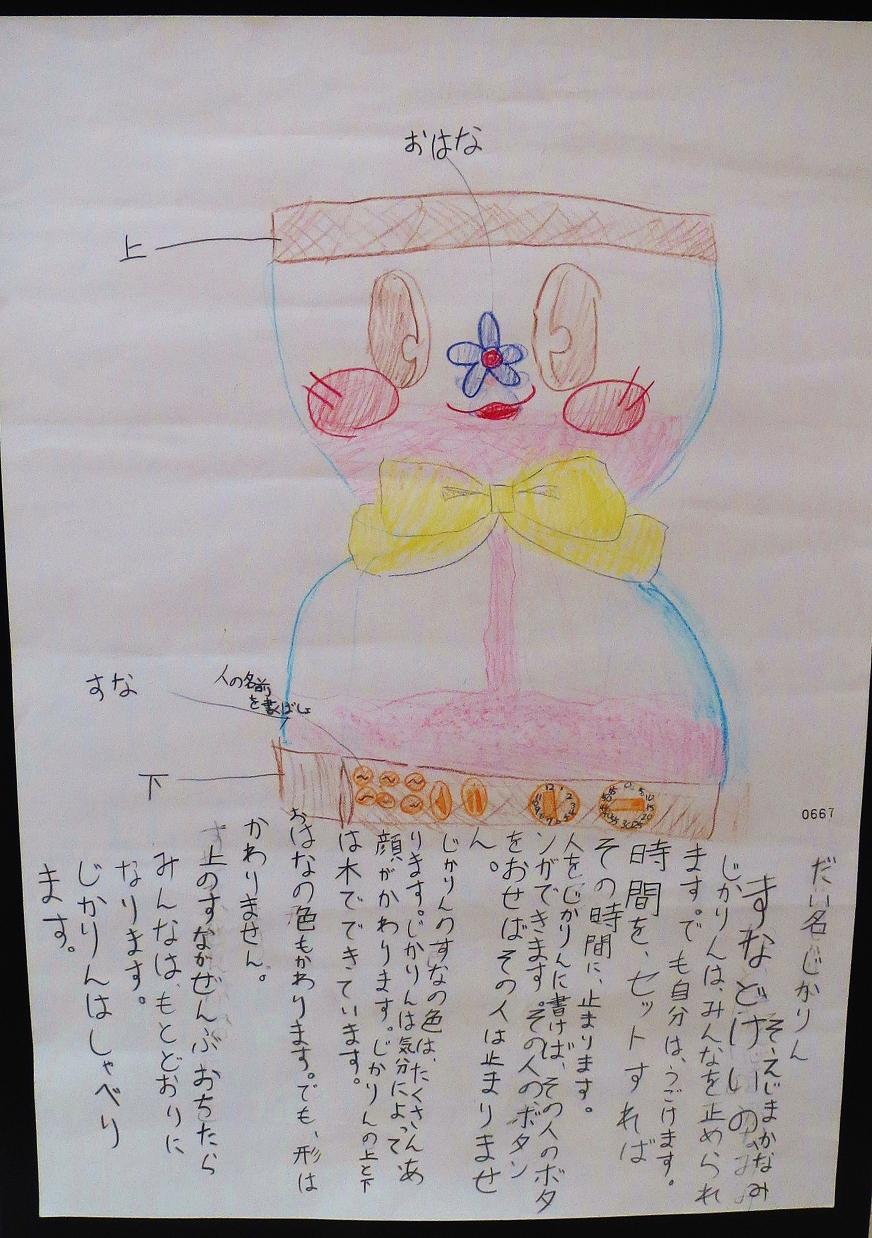 おはな
上
すな
人の名前
を書くばしょ
下
0667
だい名 じかりん
すなどけいの
そえじまかなみ
じかりんは、みんなを止められ
ます。でも自分は、うごけます。
時間を、セットすれば
その時間に、止まります。
人をじかりんに書けば、その人のボタ
ンができます。その人のボタン
をおせばその人は止まりませ
ん。
じかりんのすなの色は、たくさんあ
ります。じかりんは気分によって
顔がかわります。じかりんの上と下
は木でできています。
おはなの色もかわります。でも、形は
かわりません。
上のすながぜんぶおちたら
みんなは、もとどおりに
なります。
じかりんはしゃべり
ます。